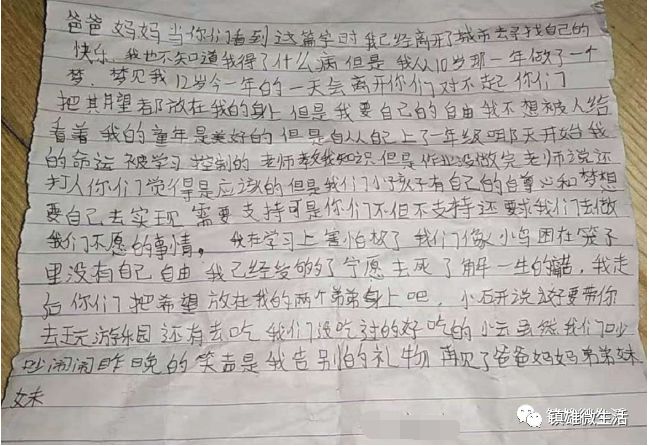 爸爸 妈妈 当你们看到这篇字时 我已经离开了城市去寻找自己的
快乐，我也不知道我得了什么病 但是 我从10岁那一年做了一个
梦，梦见我12岁今一年的一天会离开你们 对不起你们
把其月望都放在我的身上 但是我要自己的自由 我不想被人给
看着 我的童年是美好的 但是自从自己上了一年级那天开始 我
的命运被学习控制的 老师教我知识 但是作业没做完 老师说还
打人 你们觉得是应该的 但是我们小孩子有自己的自尊心和梦想
要自己去实现 需要支持 可是你们不但不支持还要求我们去做
我们不愿的事情， 我在学习上害怕极了 我们像小鸟困在笼子
里没有自己自由 我已经够了 宁愿去死了解一生的 我走
后 你们把希望放在我的两个弟弟身上吧，小 说好要带你
去玩游乐园 还有去吃我们没吃过的好吃的 小云虽然我们吵
吵闹闹 昨晚的笑声是我告别的礼物 再见了爸爸妈妈弟弟妹
妹
镇雄微生活